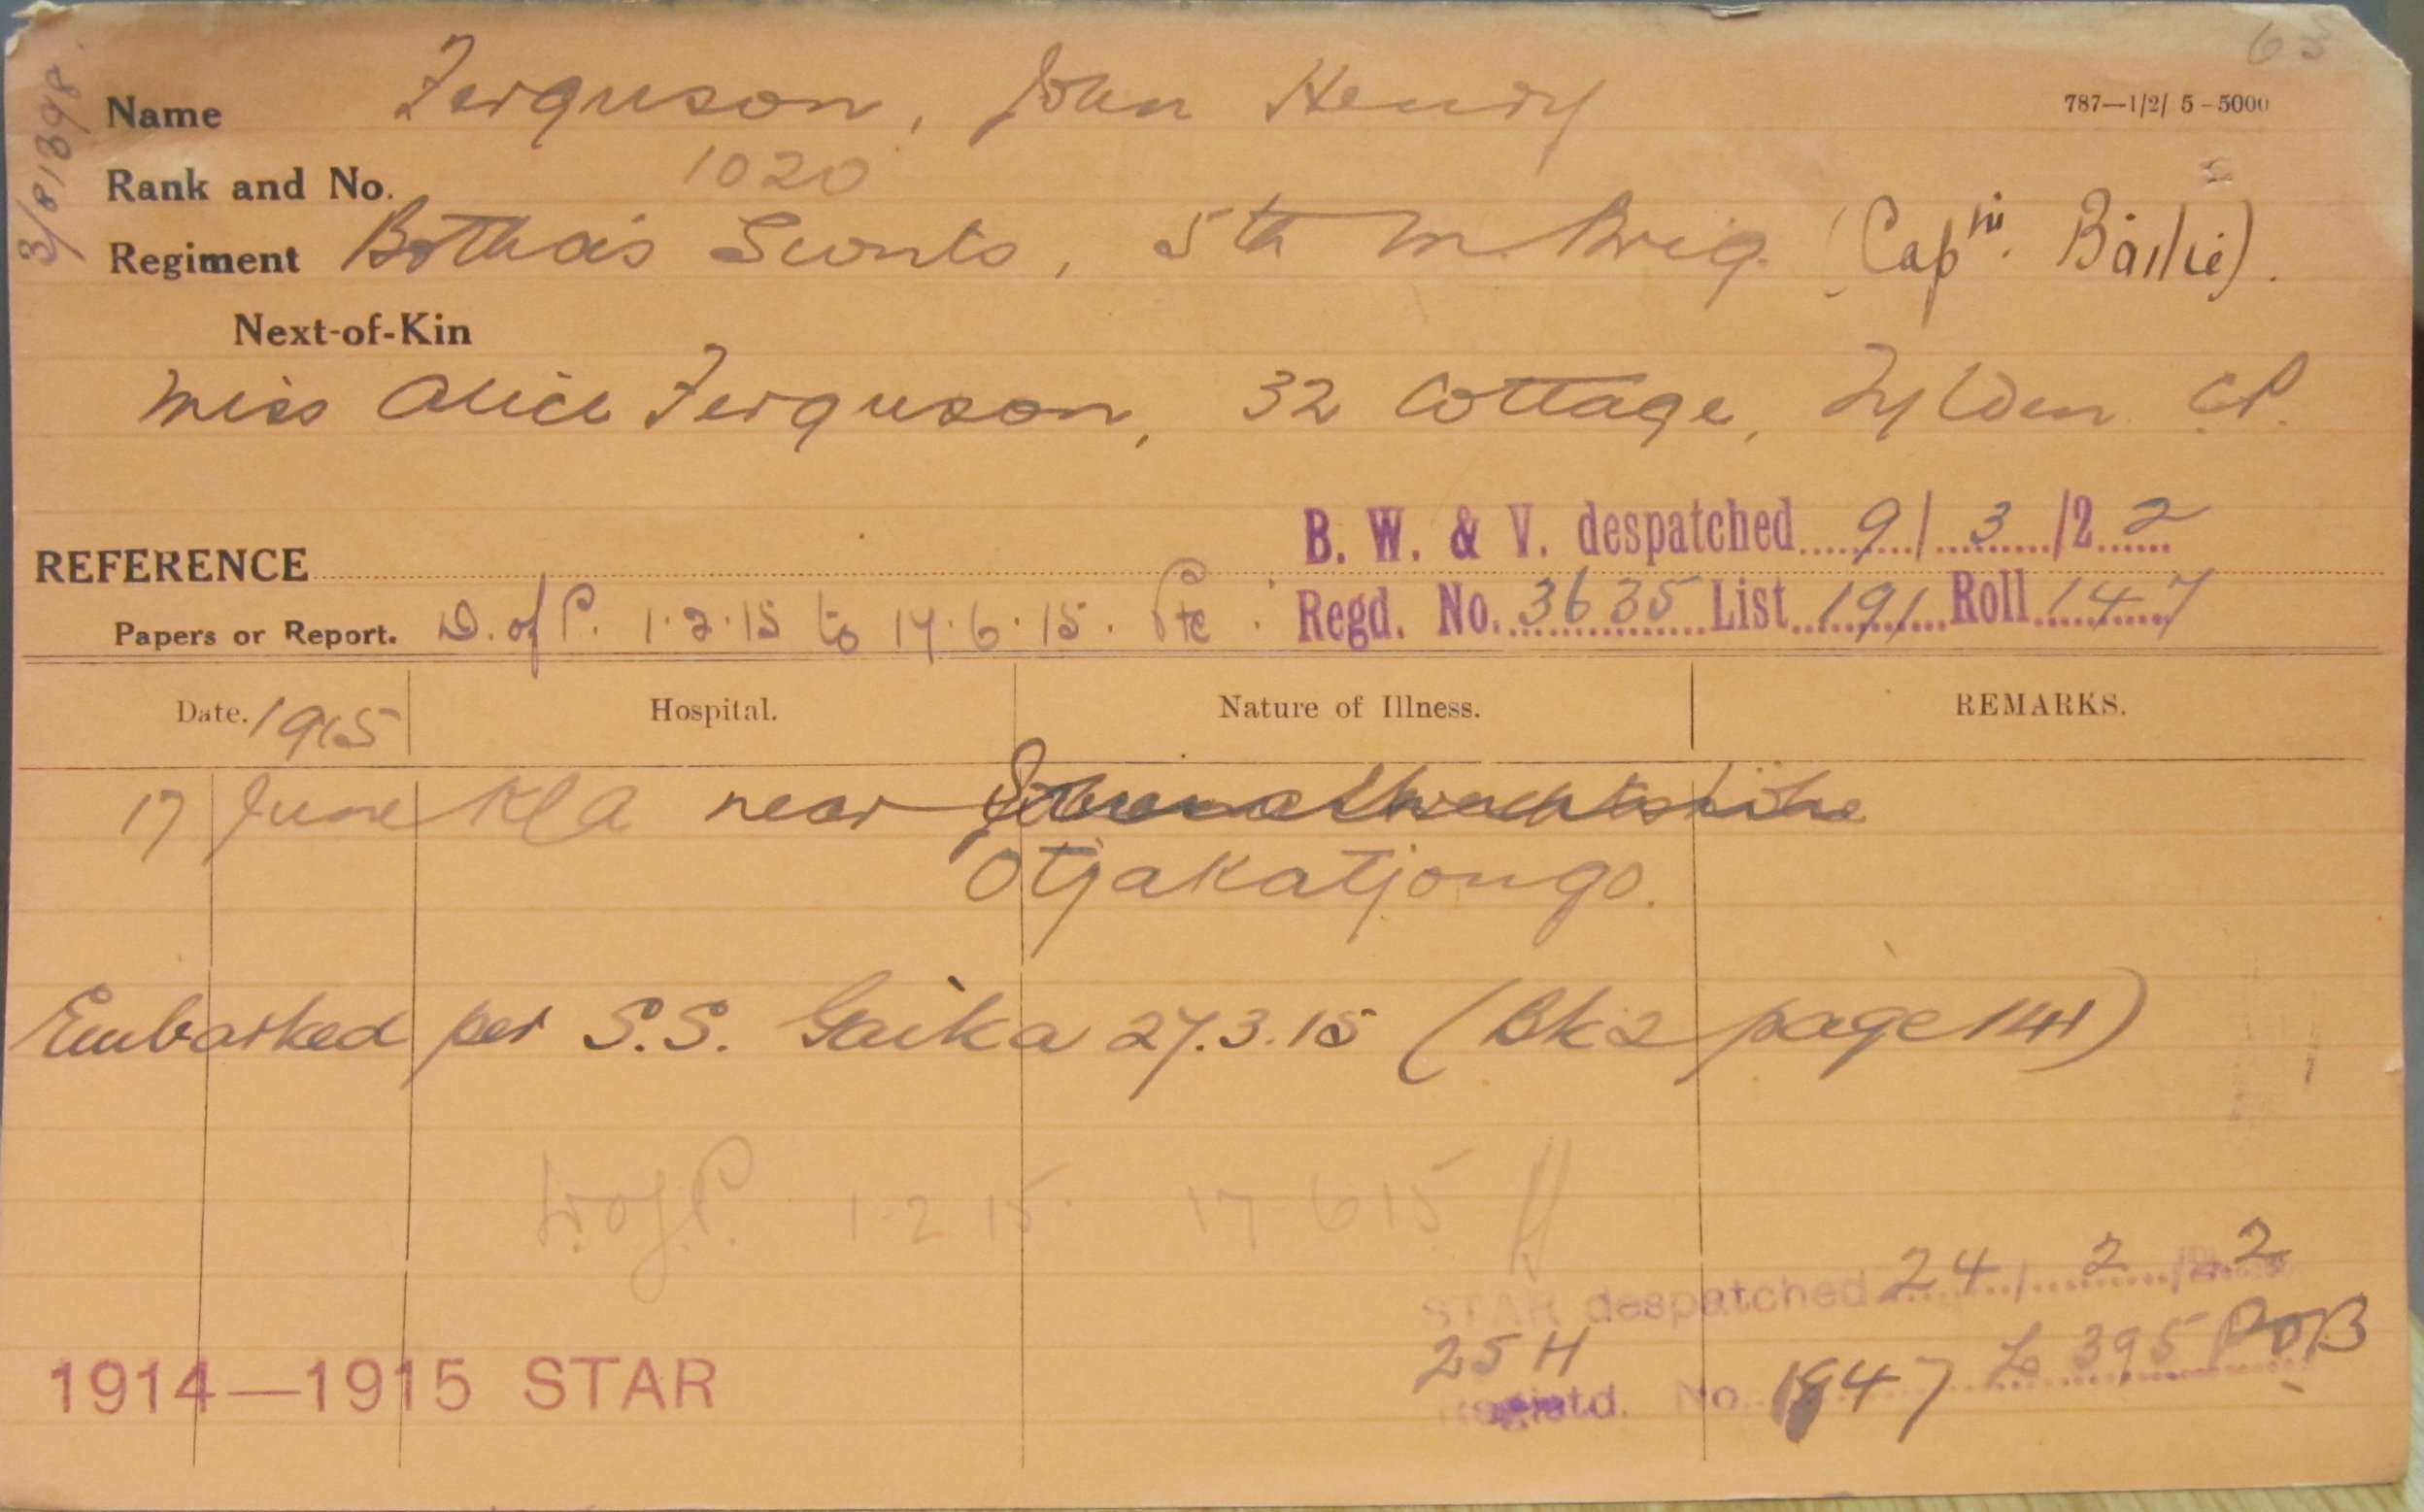 63
3/81398.
Name Ferguson, John Henry
787—1/2/ 5–5000
Rank and No. 1020
Regiment Botha's Scouts, 5th M. Brig. (Captn. Bailie).
Next-of-Kin
Miss Alice Ferguson, 32 Cottage, Tylden C.P.
B. W. & V. despatched 9/3/22
REFERENCE
Regd. No. 3635 List 191 Roll 147
Papers or Report. D. of P. 1.2.15 to 17.6.15. Pte.
Date. 1915 Hospital. Nature of Illness. REMARKS.
17 June KIA near
Otjakatjongo.
Embarked per S.S. Gaika 27.3.15 (Bk 2 page 141)
D.of.P. 1-2 15 17-6 15
STAR despatched 24/2/22
25 H
1914—1915 STAR
No. 1847 L 395 POB